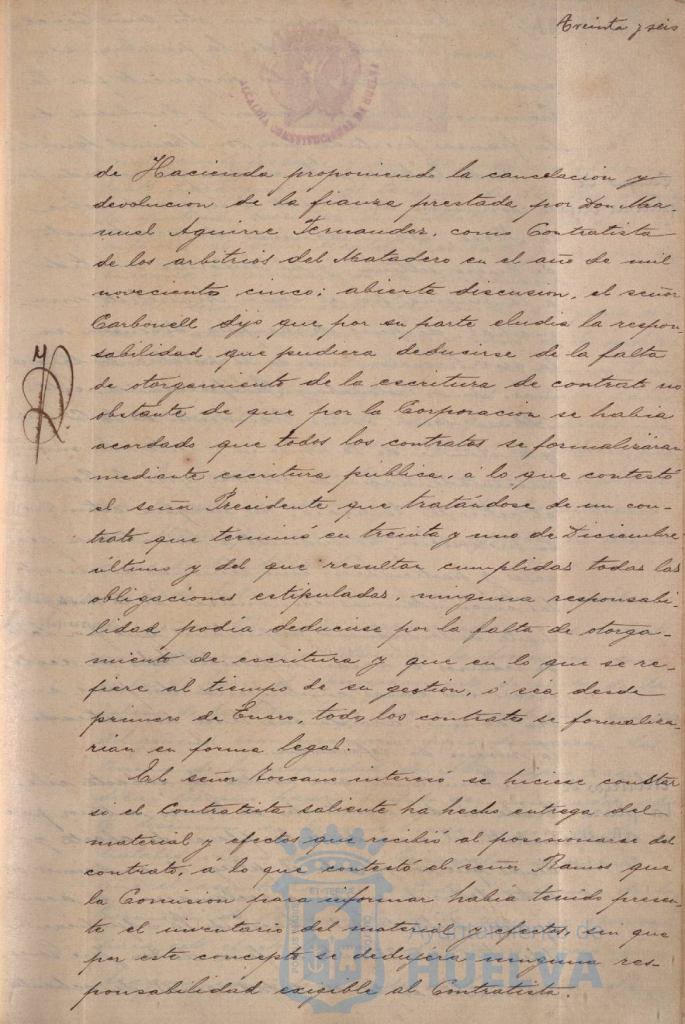 Treinta y seis
ALCALDIA CONSTITUCIONAL DE HUELVA
de Hacienda proponiendo la cancelacion y
devolucion de la fianza prestada por Don Ma-
nuel Aguirre Fernandez, como Contratista
de los arbitrios del Matadero en el año de mil
novecientos cinco; abierta discusion, el señor
Carbonell dijo que por su parte eludia la respon-
sabilidad que pudiera deducirse de la falta
de otorgamiento de la escritura de contrato no
obstante de que por la Corporacion se habia
acordado que todos los contratos se formalizáran
mediante escritura pública, á lo que contestó
el señor Presidente que tratándose de un con-
trato que terminó en treinta y uno de Diciembre
último y del que resultan cumplidas todas las
obligaciones estipuladas, ninguna responsabi-
lidad podia deducirse por la falta de otorga-
miento de escritura y que en lo que se re-
fiere al tiempo de su gestión, ó sea desde
primero de Enero, todos los contratos se formaliza-
rian en forma legal.
El señor Toscano interesó se hiciese constar
si el Contratista saliente ha hecho entrega del
material y efectos que recibió al posesionarse del
contrato, á lo que contestó el señor Ramos que
la Comision para informar habia tenido presen-
te el inventario del material y efectos, sin que
por este concepto se dedujera ninguna res-
ponsabilidad exigible al Contratista.
Ayuntamiento de
HUELVA